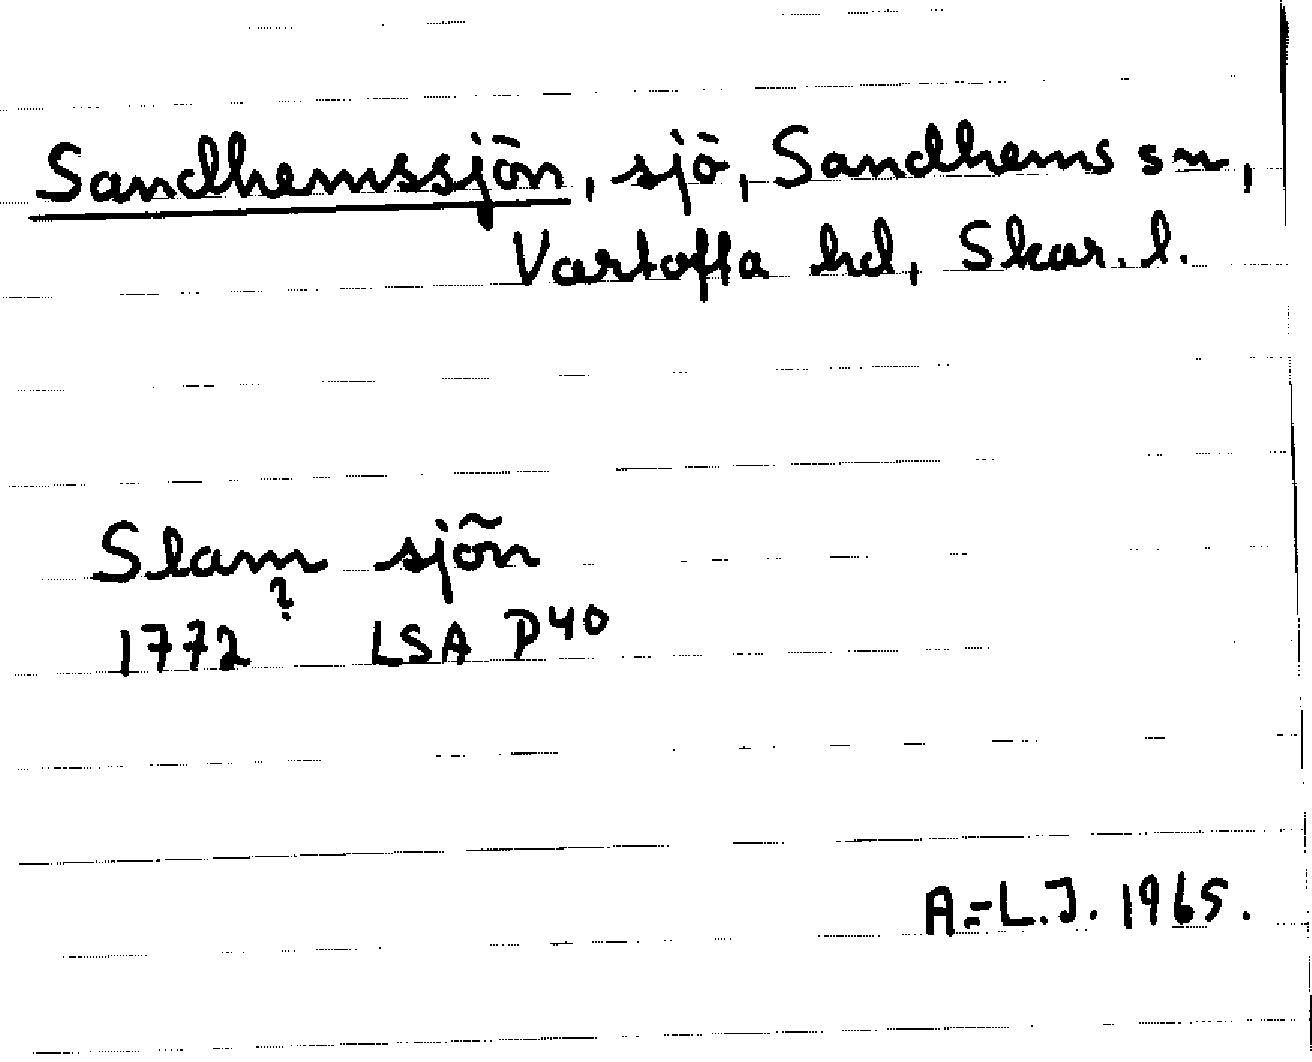 Sandhemssjön, sjö, Sandhems sn,
Vartofta hd, Skar. l.
Slam sjön
?
1772 LSA P40
A.-L.J. 1965.